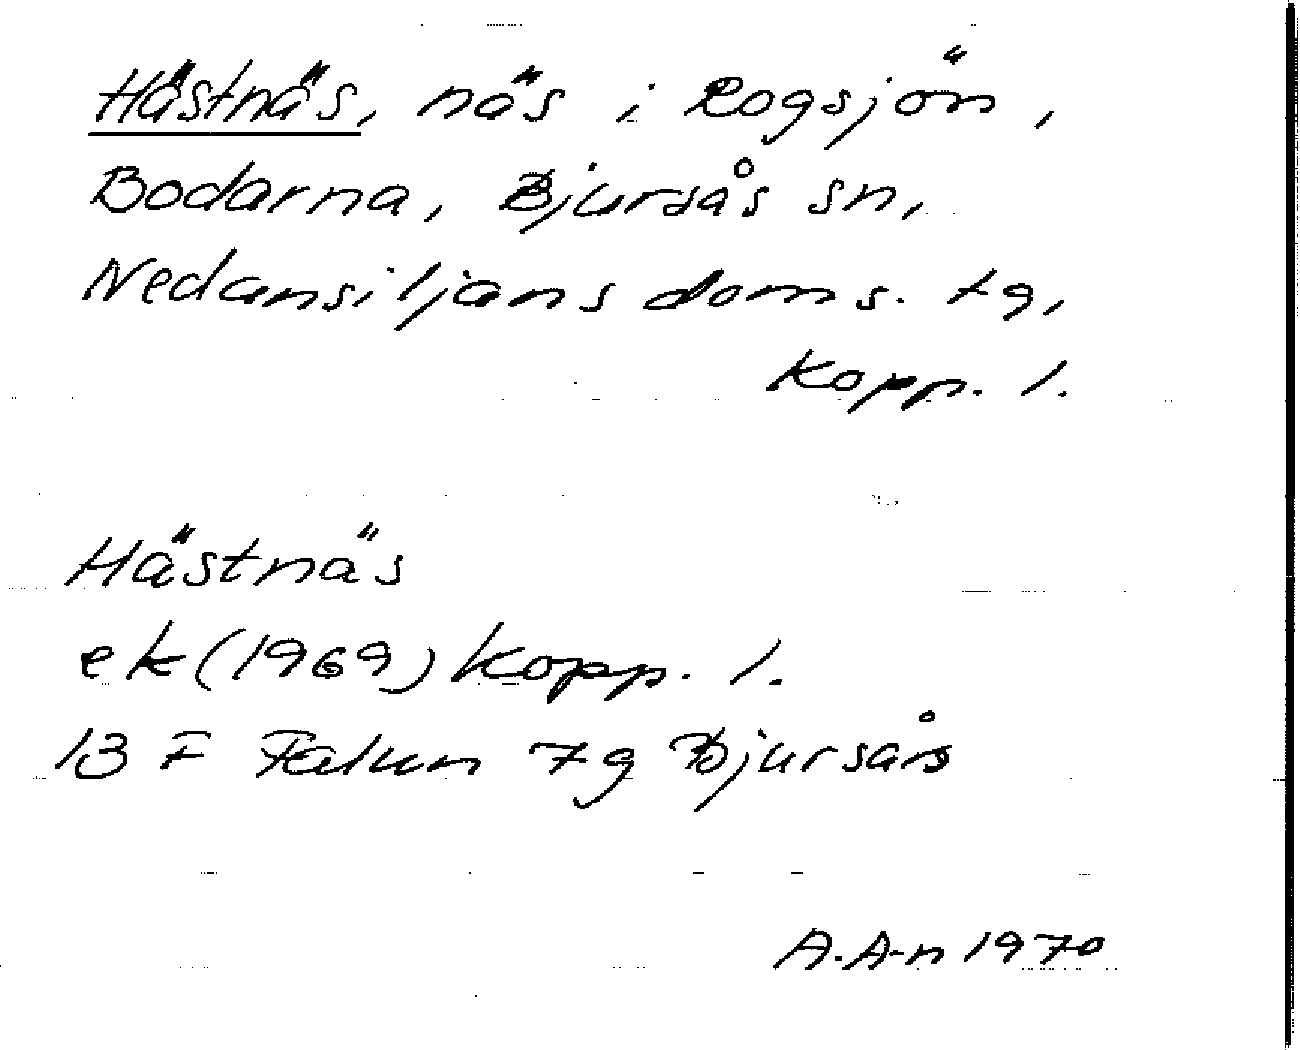 Hästnäs, näs i Rogsjön,
Bodarna, Bjursås sn,
Nedansiljans doms. tg,
Kopp. l.
Hästnäs
ek (1969) Kopp. l.
13 F Falun 7g Bjursås
A.A-n 1970